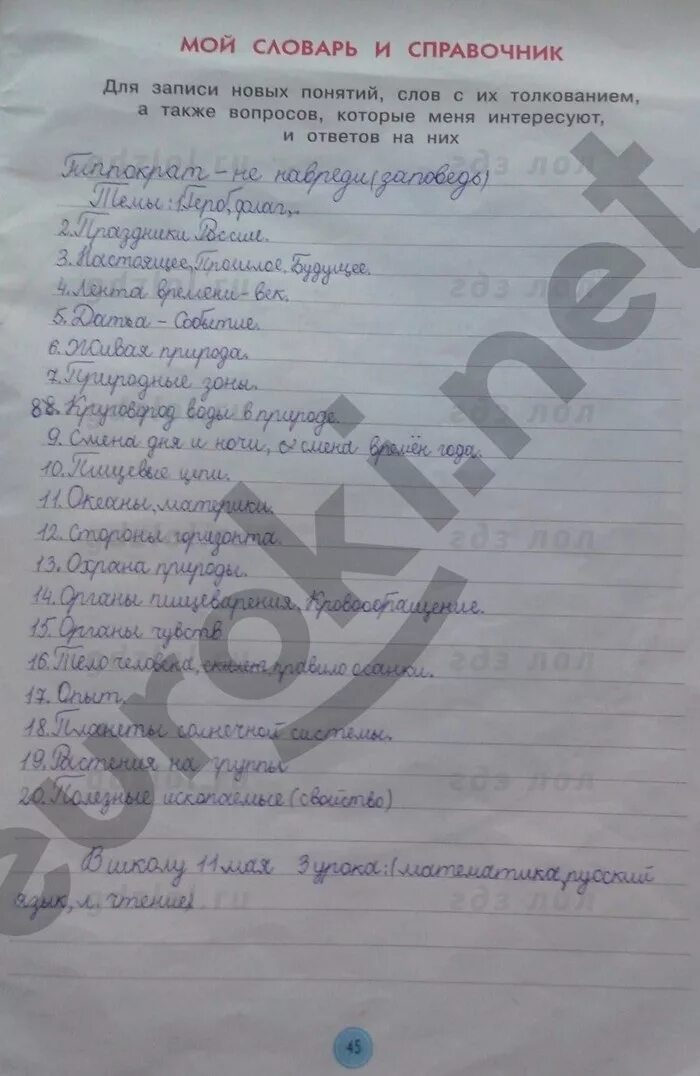 МОЙ СЛОВАРЬ И СПРАВОЧНИК
Для записи новых понятий, слов с их толкованием,
а также вопросов, которые меня интересуют,
и ответов на них
Гиппократ - не навреди (заповедь)
Темы: 1 Герб, флаг,.
2. Праздники России.
3. Настоящее, Прошлое, Будущее.
4. Лента времени - век.
5. Дата - Событие.
6. Живая природа.
7. Природные зоны.
88. Круговород воды в природе.
9. Смена дня и ночи, смена времён года.
10. Пищевые цепи.
11. Океаны, материки.
12. Стороны горизонта.
13. Охрана природы.
14. Органы пищеварения, Кровообращение.
15. Органы чувств
16. Тело человека, правило осанки.
17. Опыт.
18. Планеты солнечной системы.
19. Растения на группы
20. Полезные ископаемые (свойство)
В школу 11 мая 3 урока: (математика, русский
язык, л. чтение)
45
euroki.net